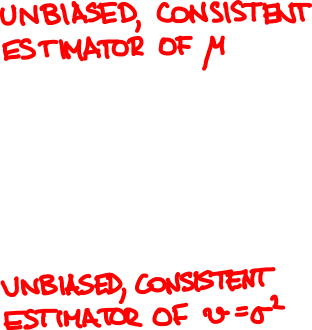 UNBIASED, CONSISTENT
ESTIMATOR OF μ
UNBIASED, CONSISTENT
ESTIMATOR OF v=σ²